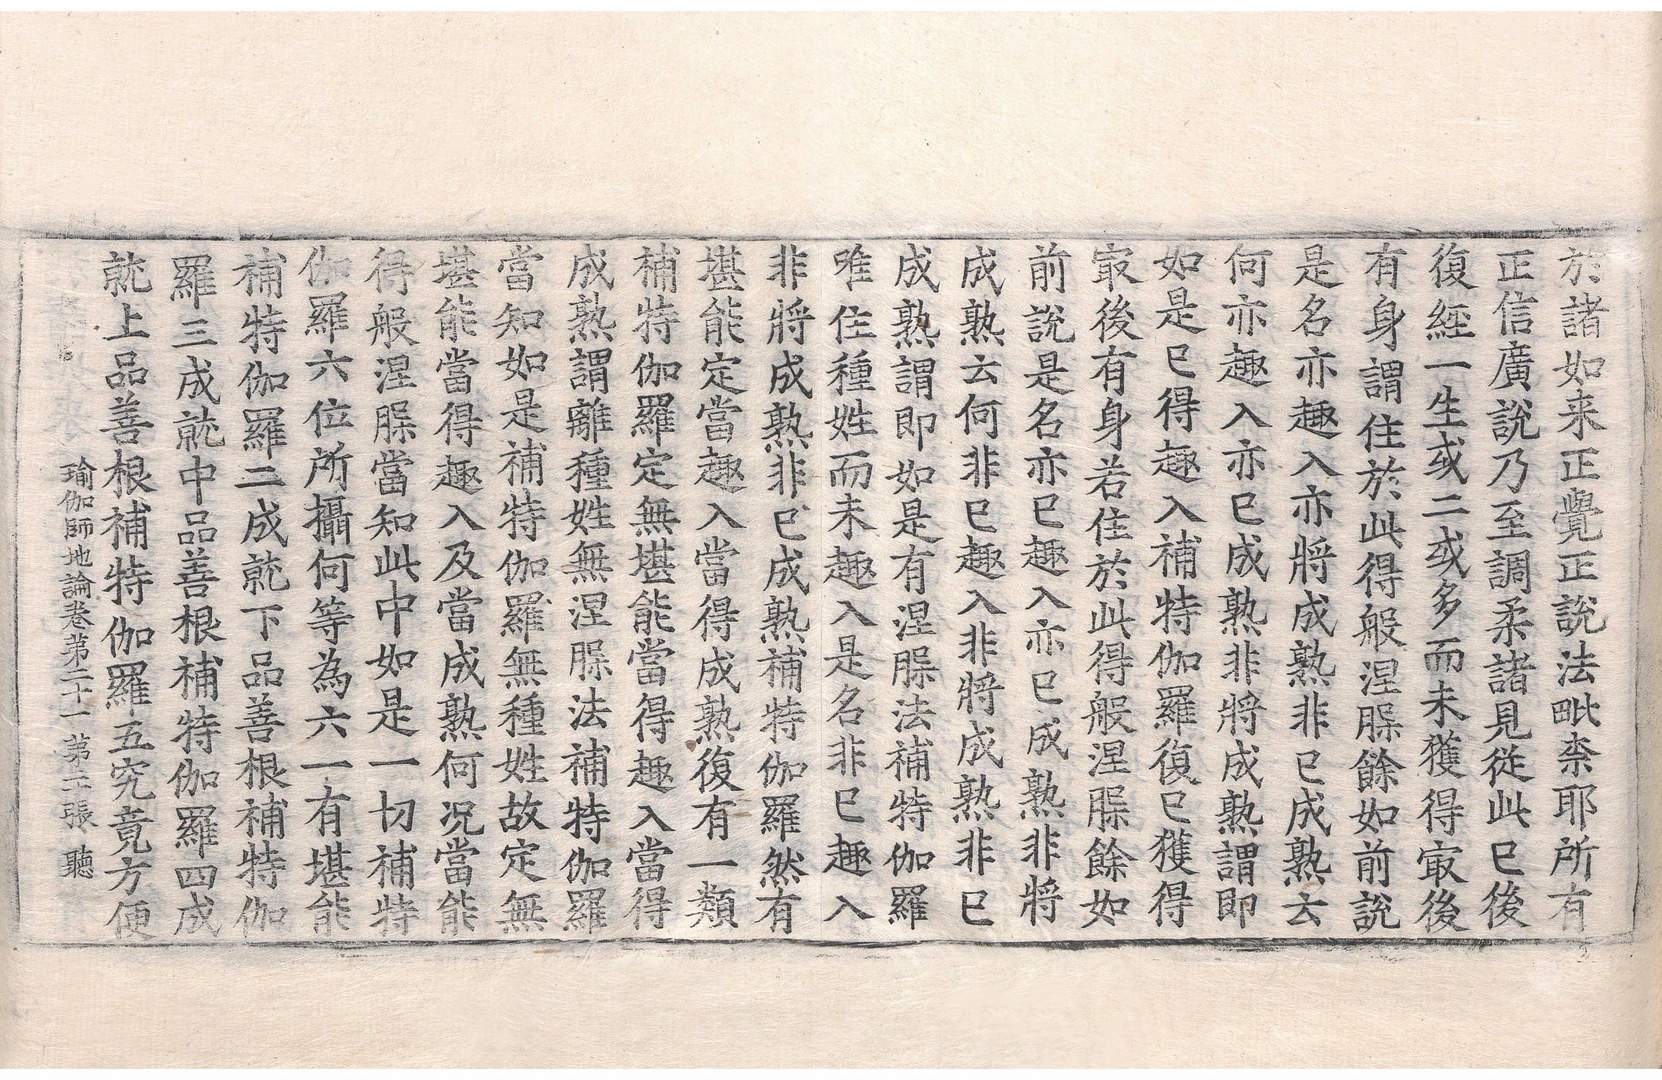 於諸如来正覺正說法毗柰耶所有
正信廣說乃至調柔諸見從此已後
復經一生或二或多而未獲得㝡後
有身謂住於此得般涅脲餘如前說
是名亦趣入亦將成熟非已成熟云
何亦趣入亦已成熟非將成熟謂即
如是已得趣入補特伽羅復已獲得
㝡後有身若住於此得般涅脲餘如
前說是名亦已趣入亦已成熟非將
成熟云何非已趣入非將成熟非已
成熟謂即如是有涅脲法補特伽羅
唯住種姓而未趣入是名非已趣入
非將成熟非已成熟補特伽羅然有
堪能定當趣入當得成熟復有一類
補特伽羅定無堪能當得趣入當得
成熟謂離種姓無涅脲法補特伽羅
當知如是補特伽羅無種姓故定無
堪能當得趣入及當成熟何况當能
得般涅脲當知此中如是一切補特
伽羅六位所攝何等為六一有堪能
補特伽羅二成就下品善根補特伽
羅三成就中品善根補特伽羅四成
就上品善根補特伽羅五究竟方便
瑜伽師地論卷第二十一 第二張 聽